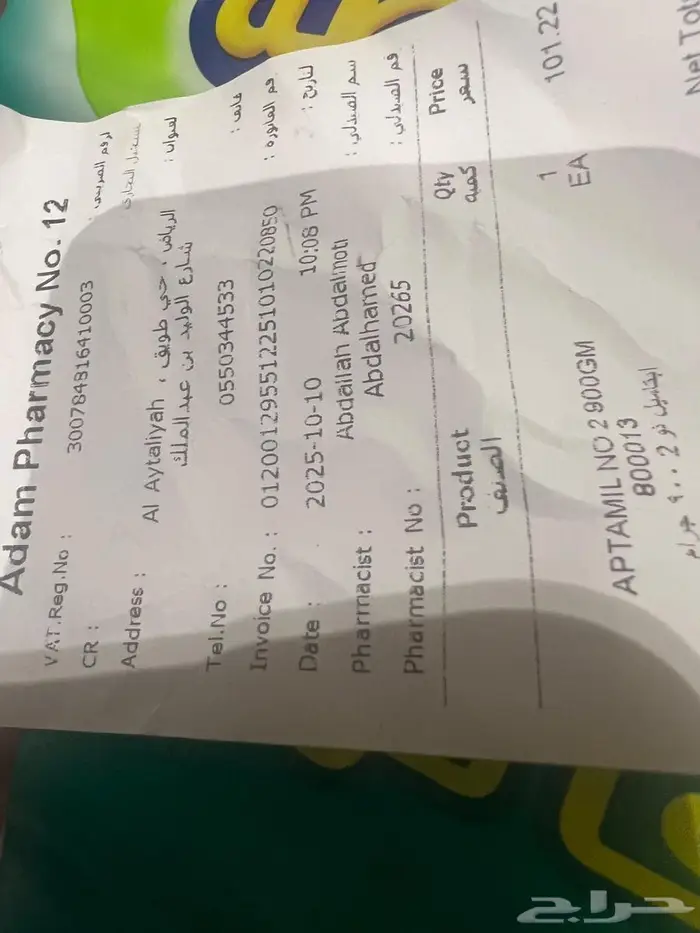 Adam Pharmacy No. 12
VAT.Reg.No : 300784816410003
CR :
Address : Al Aytaliyah ، الرياض ، حي طويق ، لعنوان :
شارع الوليد بن عبدالملك
Tel.No : 0550344533 هاتف :
Invoice No. : 0120012955122510102208S0
Date : 2025-10-10 10:08 PM لتاريخ :
Pharmacist : Abdallah Abdalmoti سم الصيدلي :
Abdalhamed
Pharmacist No : 20265 قم الصيدلي :
Product Qty Price
الصنف كمية سعر
1 101.22
EA
APTAMIL NO 2 900GM
800013
ابتاميل نو 2 ٩٠٠ جرام
Net Tot
حراج